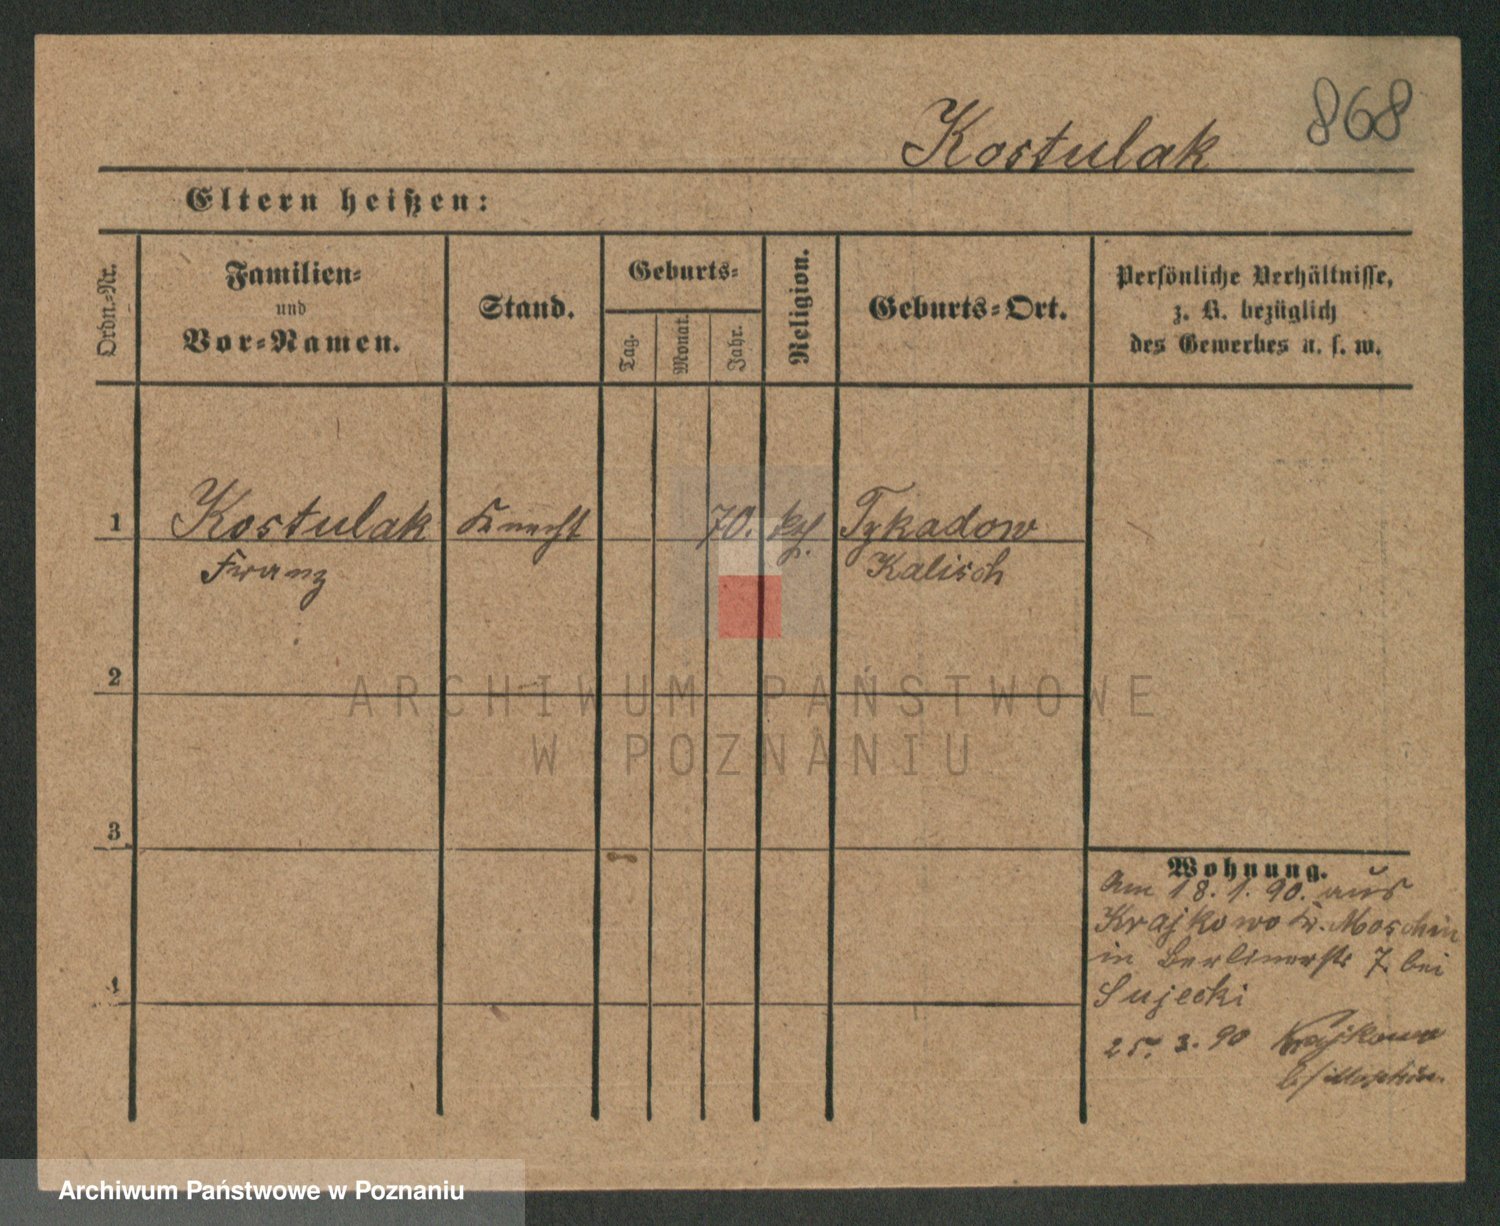 868
Kostulak
Eltern heißen:
Ordn.-Nr.
Familien-
und
Vor-Namen.
Stand.
Geburts-
Tag.
Monat.
Jahr.
Religion.
Geburts-Ort.
Persönliche Verhältnisse,
z. B. bezüglich
des Gewerbes u. s. w.
1 Kostulak Knecht 70. kth. Tykadow
Franz Kalisch
2
ARCHIWUM PAŃSTWOWE
W POZNANIU
3
Wohnung.
Am 18.1.90. aus
Krajkowo b. Moschin
in Berlinerstr 7. bei
Sujecki
4
25. 3. 90 Krajkowo
b/ Moschin.
Archiwum Państwowe w Poznaniu